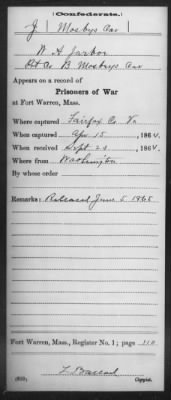 (Confederate.)
J | Mosbys Cav
W H Jarboe
Pvt Co B Mosbys Cav
Appears on a record of
Prisoners of War
at Fort Warren, Mass.
Where captured Fairfax Co Va
When captured Apr 15, 1864.
When received Sept 23, 1864.
Where from Washington
By whose order
Remarks: Released June 5 1865
Fort Warren, Mass., Register No. 1; page 110
Copyist.